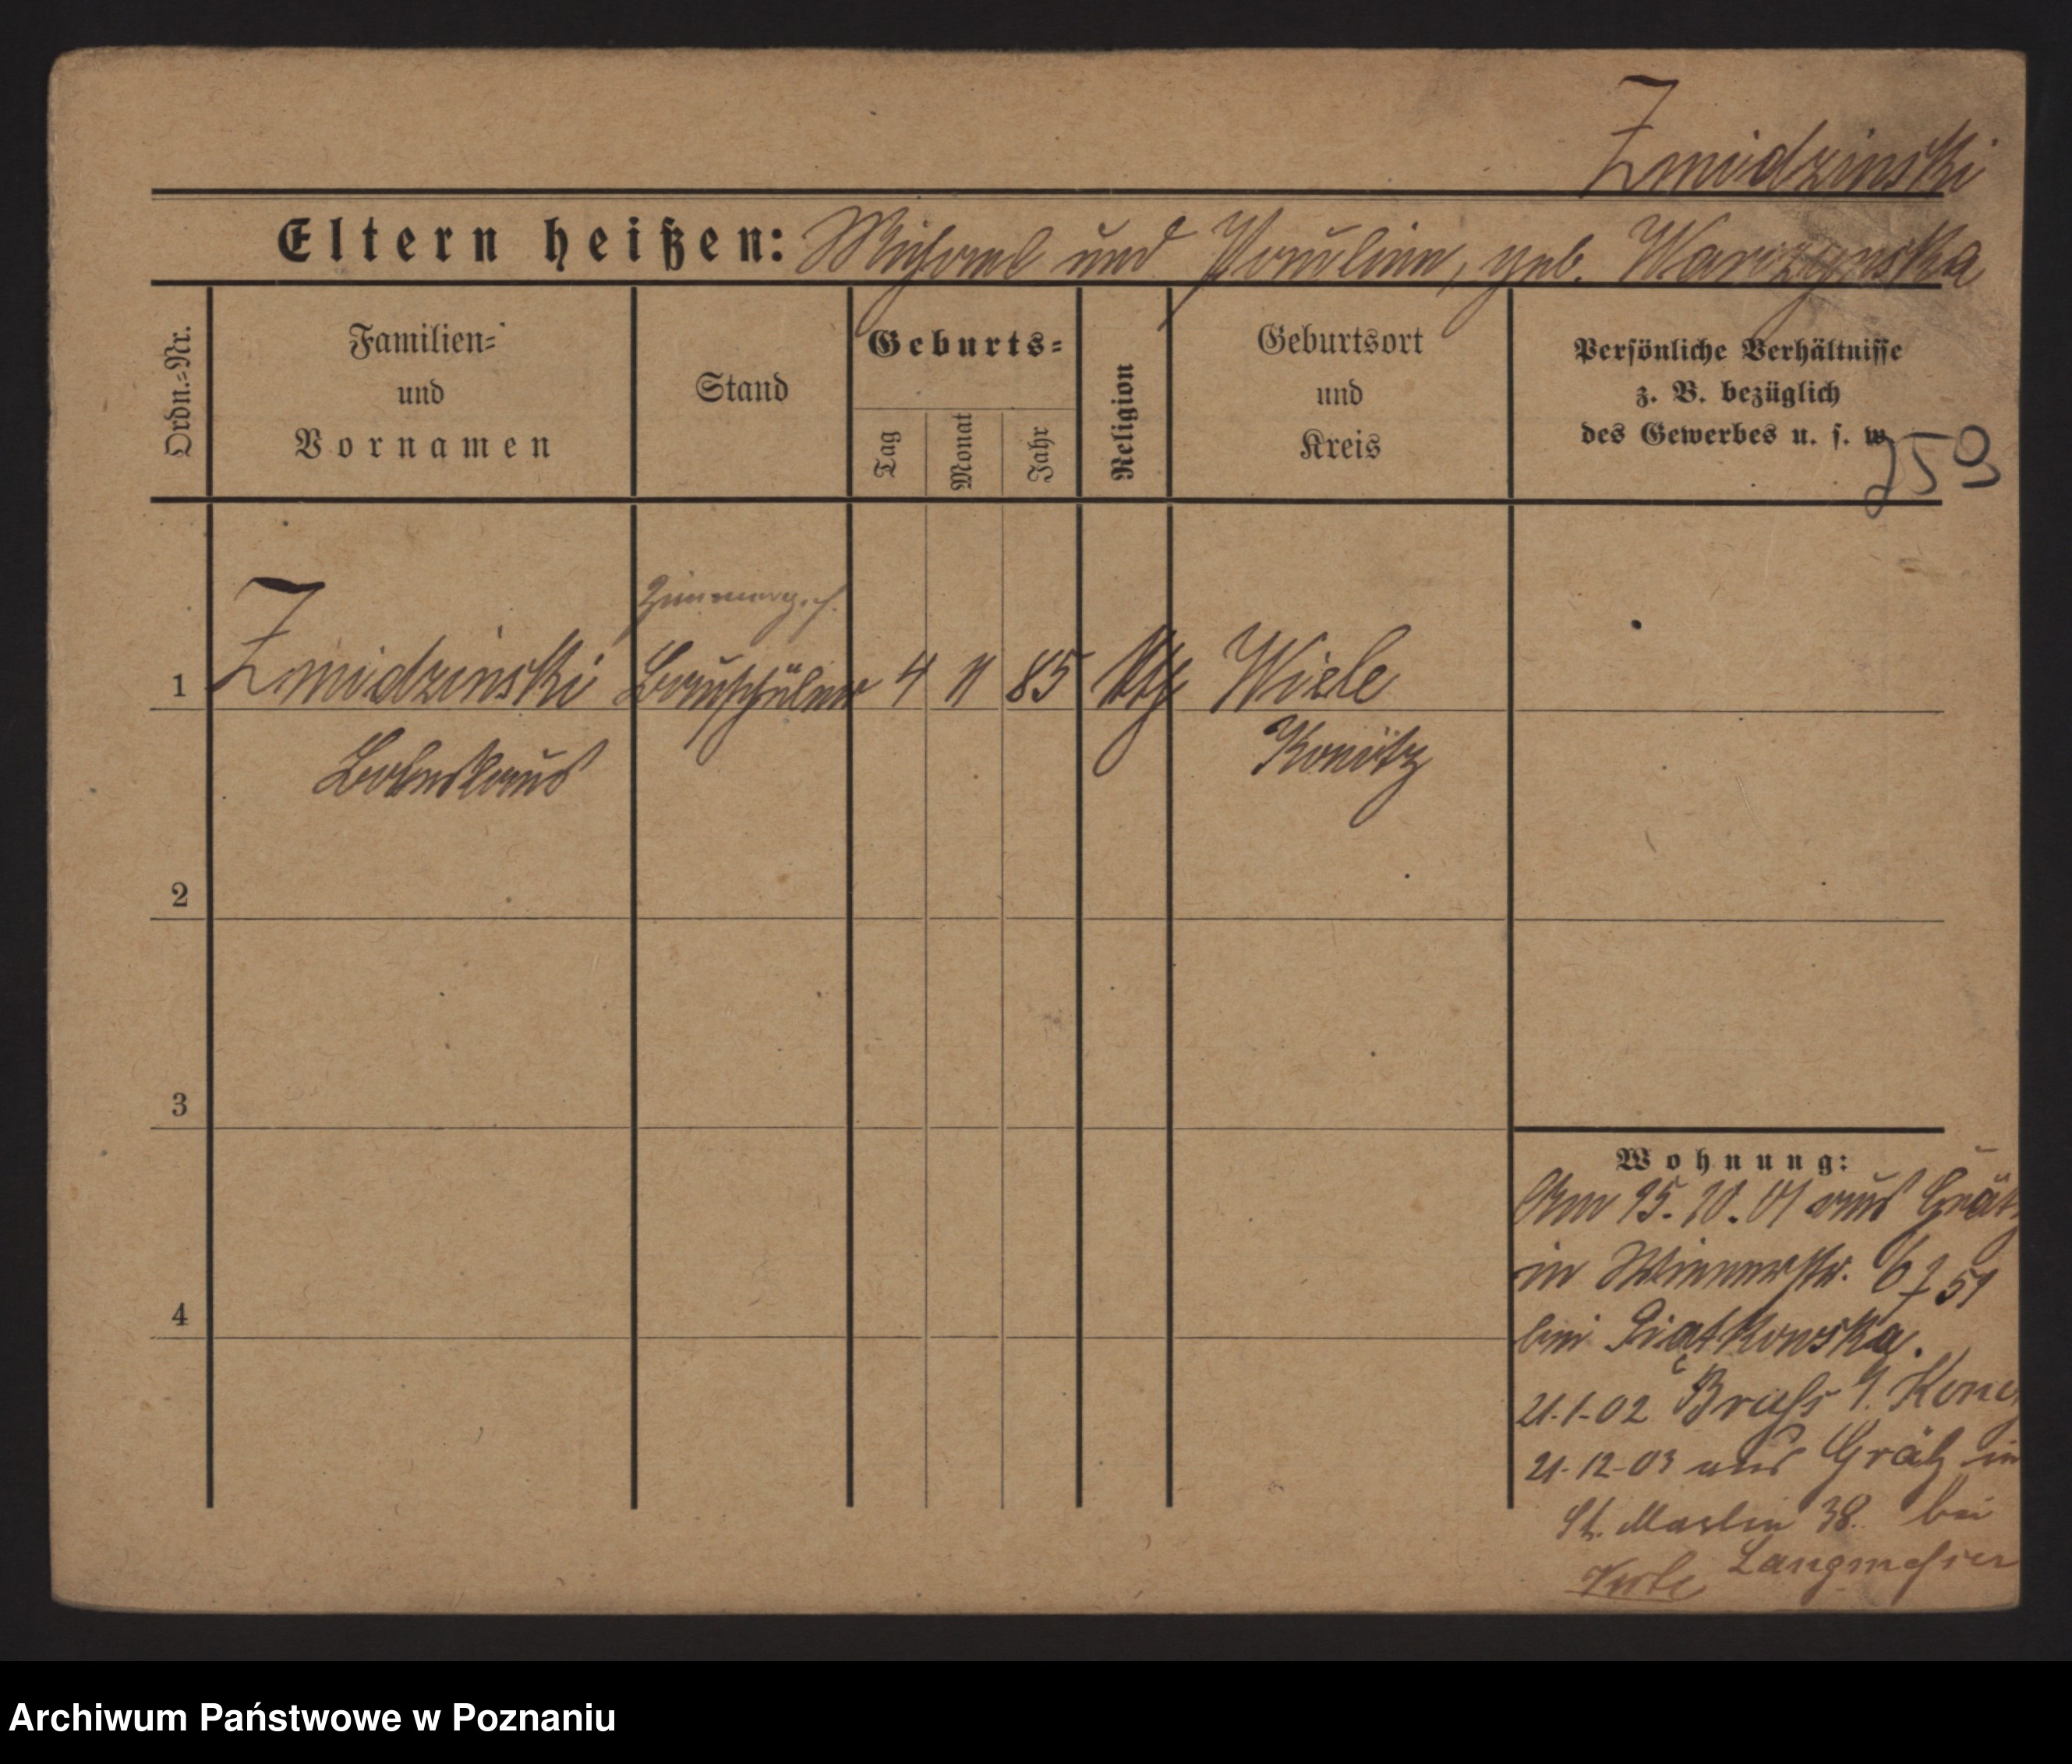 Zmudzinski
Eltern heißen: Michael und Paulina, geb. Warzynska
Ordn.=Nr.
Familien=
und
Vornamen
Stand
Geburts=
Tag
Monat
Jahr
Religion
Geburtsort
und
Kreis
Persönliche Verhältnisse
z. B. bezüglich
des Gewerbes u. s. w.
259
Zimmerges.
1 Zmudzinski Bauschüler 4 11 85 kth Wiele
Boleslaus Konitz
2
3
4
Wohnung:
Am 15.10.01 aus Grätz
in Wienerstr. 6 751
bei Piątkowska.
21.1.02
21.12.03 aus Grätz in
St. Martin 38. bei
Langmesser
Archiwum Państwowe w Poznaniu